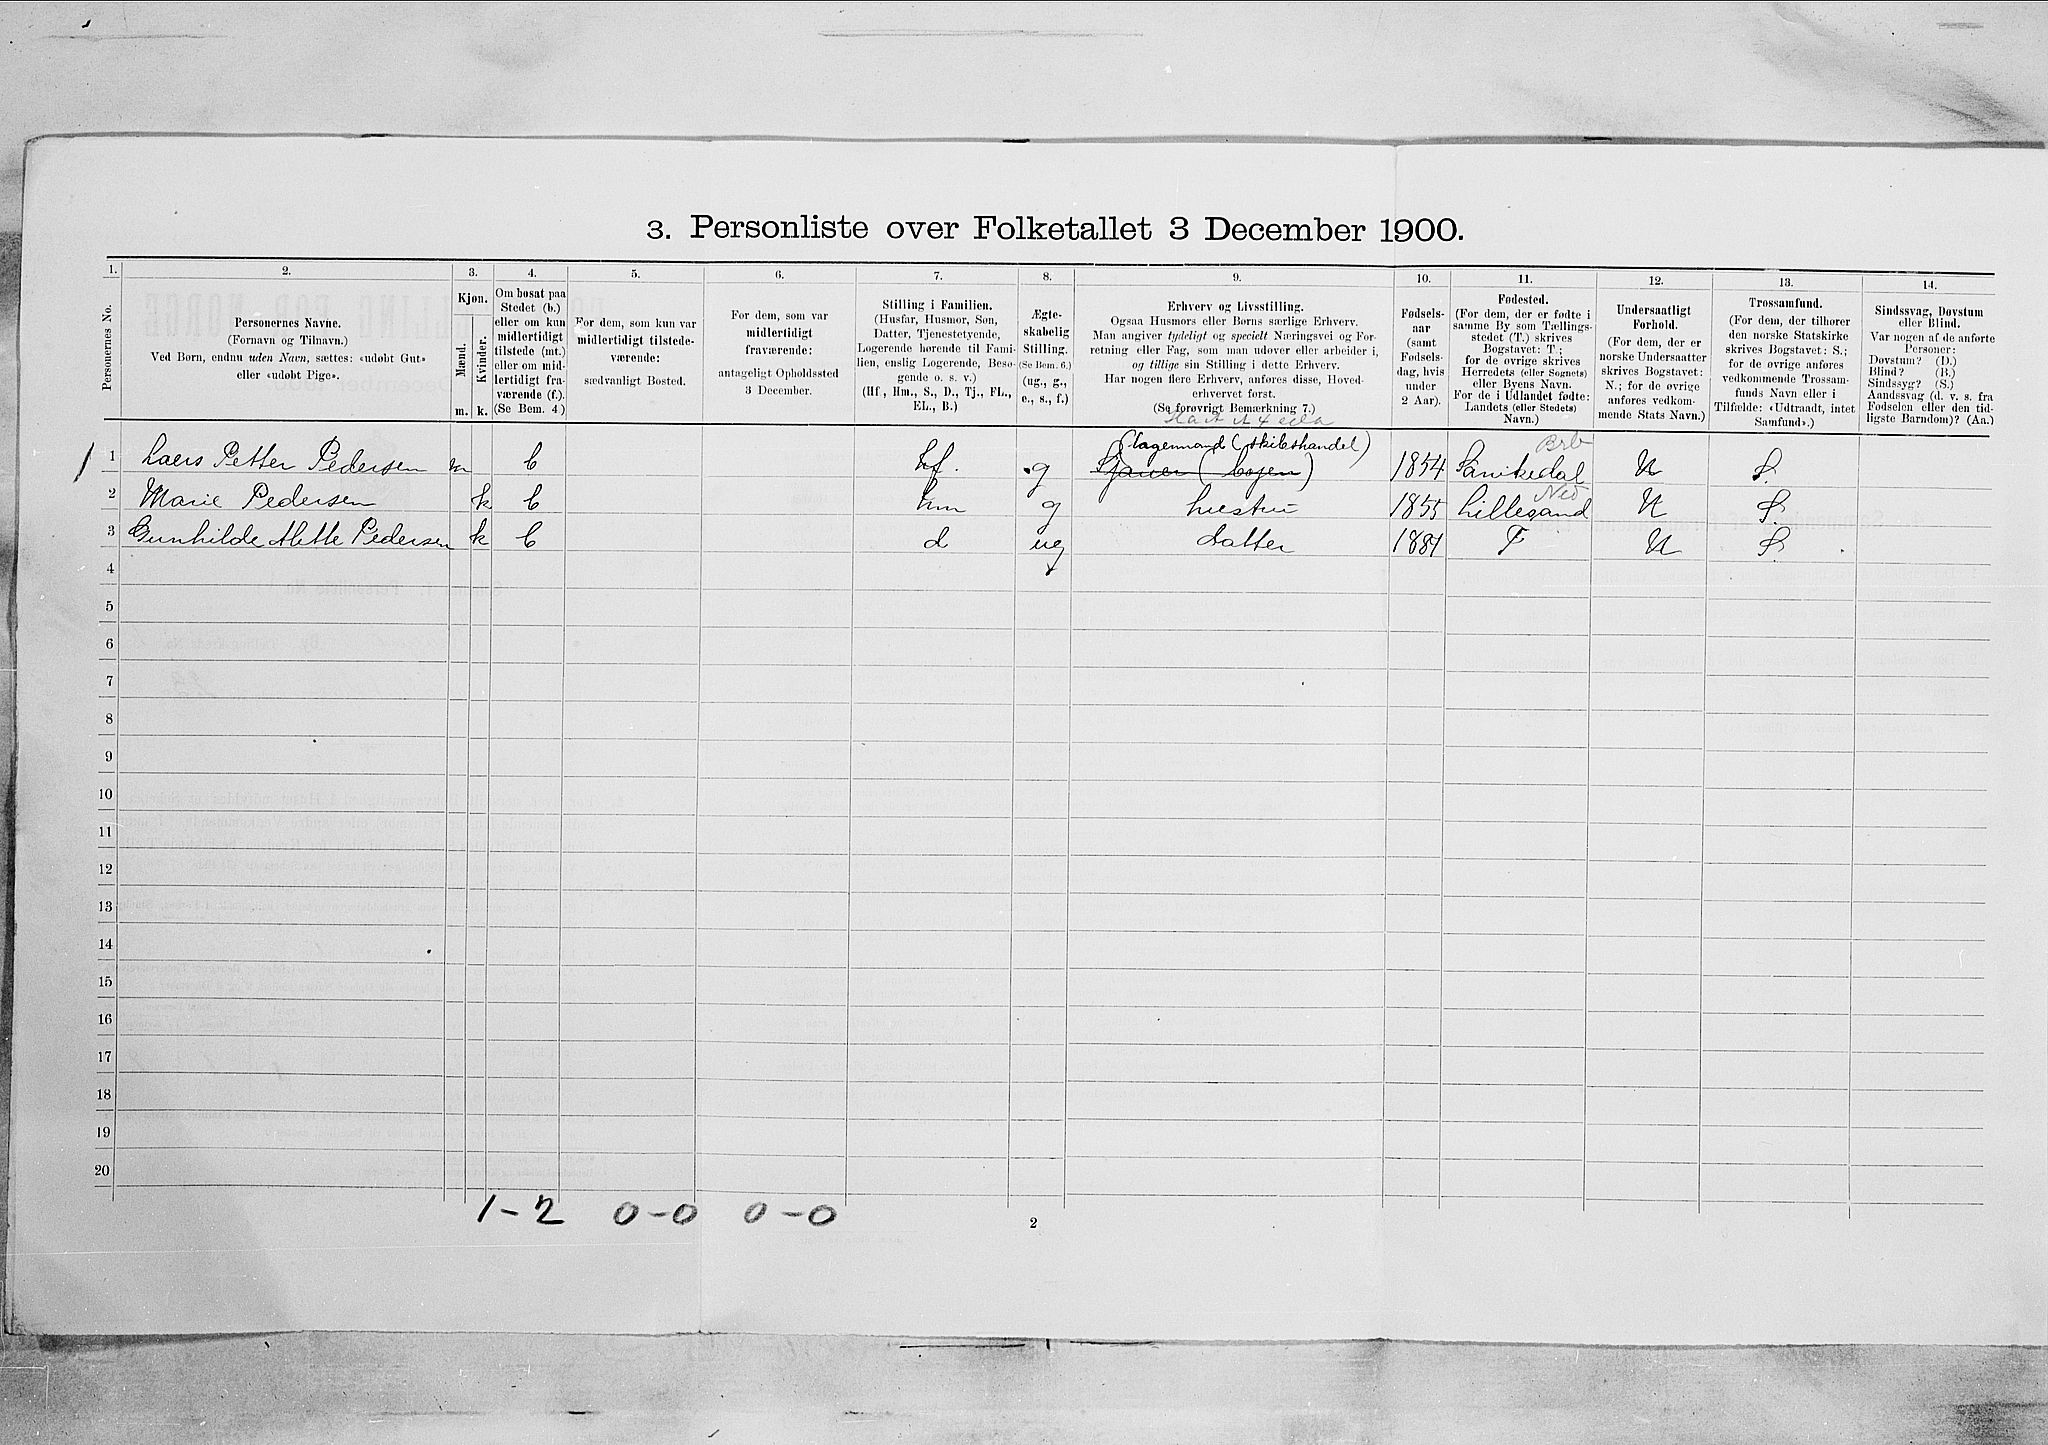 3. Personliste over Folketallet 3 December 1900.
1. 2. 3. 4. 5. 6. 7. 8. 9. 10. 11. 12. 13. 14.
Personernes No.
Personernes Navne.
(Fornavn og Tilnavn.)
Ved Børn, endnu uden Navn, sættes: «udøbt Gut»
eller «udøbt Pige».
Kjøn.
Mænd.
Kvinder.
m. k.
Om bosat paa
Stedet (b.)
eller om kun
midlertidigt
tilstede (mt.)
eller om mid-
lertidigt fra-
værende (f.).
(Se Bem. 4.)
For dem, som kun var
midlertidigt tilstede-
værende:
sædvanligt Bosted.
For dem, som var
midlertidigt
fraværende:
antageligt Opholdssted
3 December.
Stilling i Familien.
(Husfar, Husmor, Søn,
Datter, Tjenestetyende,
Logerende hørende til Fami-
lien, enslig Logerende, Besø-
gende o. s. v.)
(Hf., Hm., S., D., Tj., FL.,
EL., B.)
Ægte-
skabelig
Stilling.
(Se Bem. 6.)
(ug., g.,
e., s., f.)
Erhverv og Livsstilling.
Ogsaa Husmors eller Børns særlige Erhverv.
Man angiver tydeligt og specielt Næringsvei og For-
retning eller Fag, som man udøver eller arbeider i,
og tillige sin Stilling i dette Erhverv.
Har nogen flere Erhverv, anføres disse, Hoved-
erhvervet først.
(Se forøvrigt Bemærkning 7.)
Fødsels-
aar
(samt
Fødsels-
dag, hvis
under
2 Aar).
Fødested.
(For dem, der er fødte i
samme By som Tællings-
stedet (T.) skrives
Bogstavet: T;
for de øvrige skrives
Herredets (eller Sognets)
eller Byens Navn.
For de i Udlandet fødte:
Landets (eller Stedets)
Navn.)
Undersaatligt
Forhold.
(For dem, der er
norske Undersaatter
skrives Bogstavet:
N.; for de øvrige
anføres vedkom-
mende Stats Navn.)
Trossamfund.
(For dem, der tilhører
den norske Statskirke
skrives Bogstavet: S.;
for de øvrige anføres
vedkommende Trossam-
funds Navn eller i
Tilfælde: «Udtraadt, intet
Samfund».)
Sindssvag, Døvstum
eller Blind.
Var nogen af de anførte
Personer:
Døvstum? (D.)
Blind? (B.)
Sindssyg? (S.)
Aandssvag (d. v. s. fra
Fødselen eller den tid-
ligste Barndom)? (Aa.)
Lagermand (skibshandel) Brb
1 1 Laers Petter Pedersen m b hf. g (bojen) 1854 Sanikedal N S.
Ned
2 Marie Pedersen k b hm g hustru 1855 Lillesand N S.
3 Gunhilde Mette Pedersen k b d ug datter 1881 T N S.
4
5
6
7
8
9
10
11
12
13
14
15
16
17
18
19
20
1-2 0-0 0-0
2